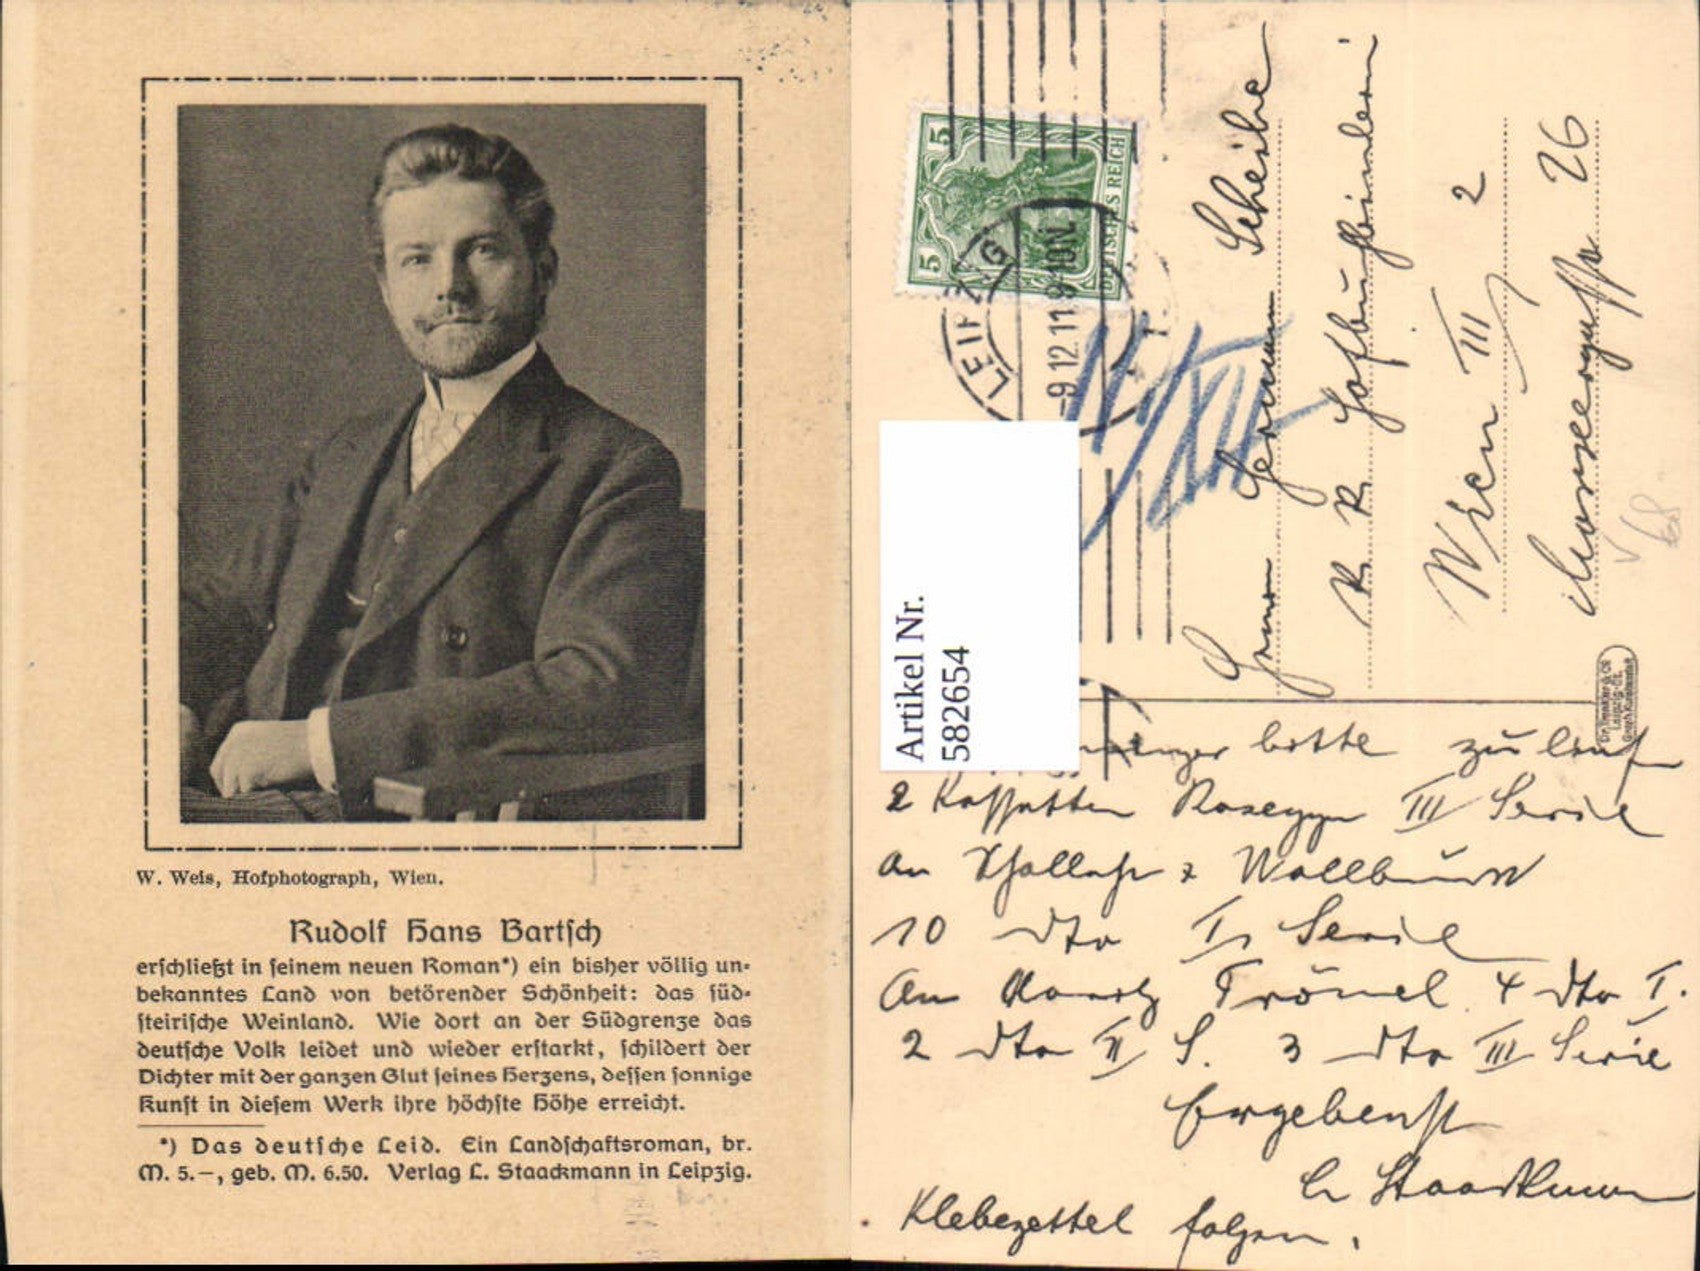 W. Weis, Hofphotograph, Wien.
Rudolf Hans Bartsch
erschließt in seinem neuen Roman*) ein bisher völlig un-
bekanntes Land von betörender Schönheit: das süd-
steirische Weinland. Wie dort an der Südgrenze das
deutsche Volk leidet und wieder erstarkt, schildert der
Dichter mit der ganzen Glut seines Herzens, dessen sonnige
Kunst in diesem Werk ihre höchste Höhe erreicht.
*) Das deutsche Leid. Ein Landschaftsroman, br.
M. 5.–, geb. M. 6.50. Verlag L. Staackmann in Leipzig.
5 5
DEUTSCHES REICH
LEIPZIG
-9.12.11.9-10N.
Artikel Nr.
582654
Herrn Hermann Scheibe
K. K. Hofbuchbinderei
Wien III 2
Marxergasse 26
bitte zu
2 Kassetten Rosegger III Serie
an & Wallbaum
10 dto I Serie
An Moritz 4 dto I.
2 dto II S. 3 dto III Serie
Ergebenst
L Staackmann
Klebezettel folgen.